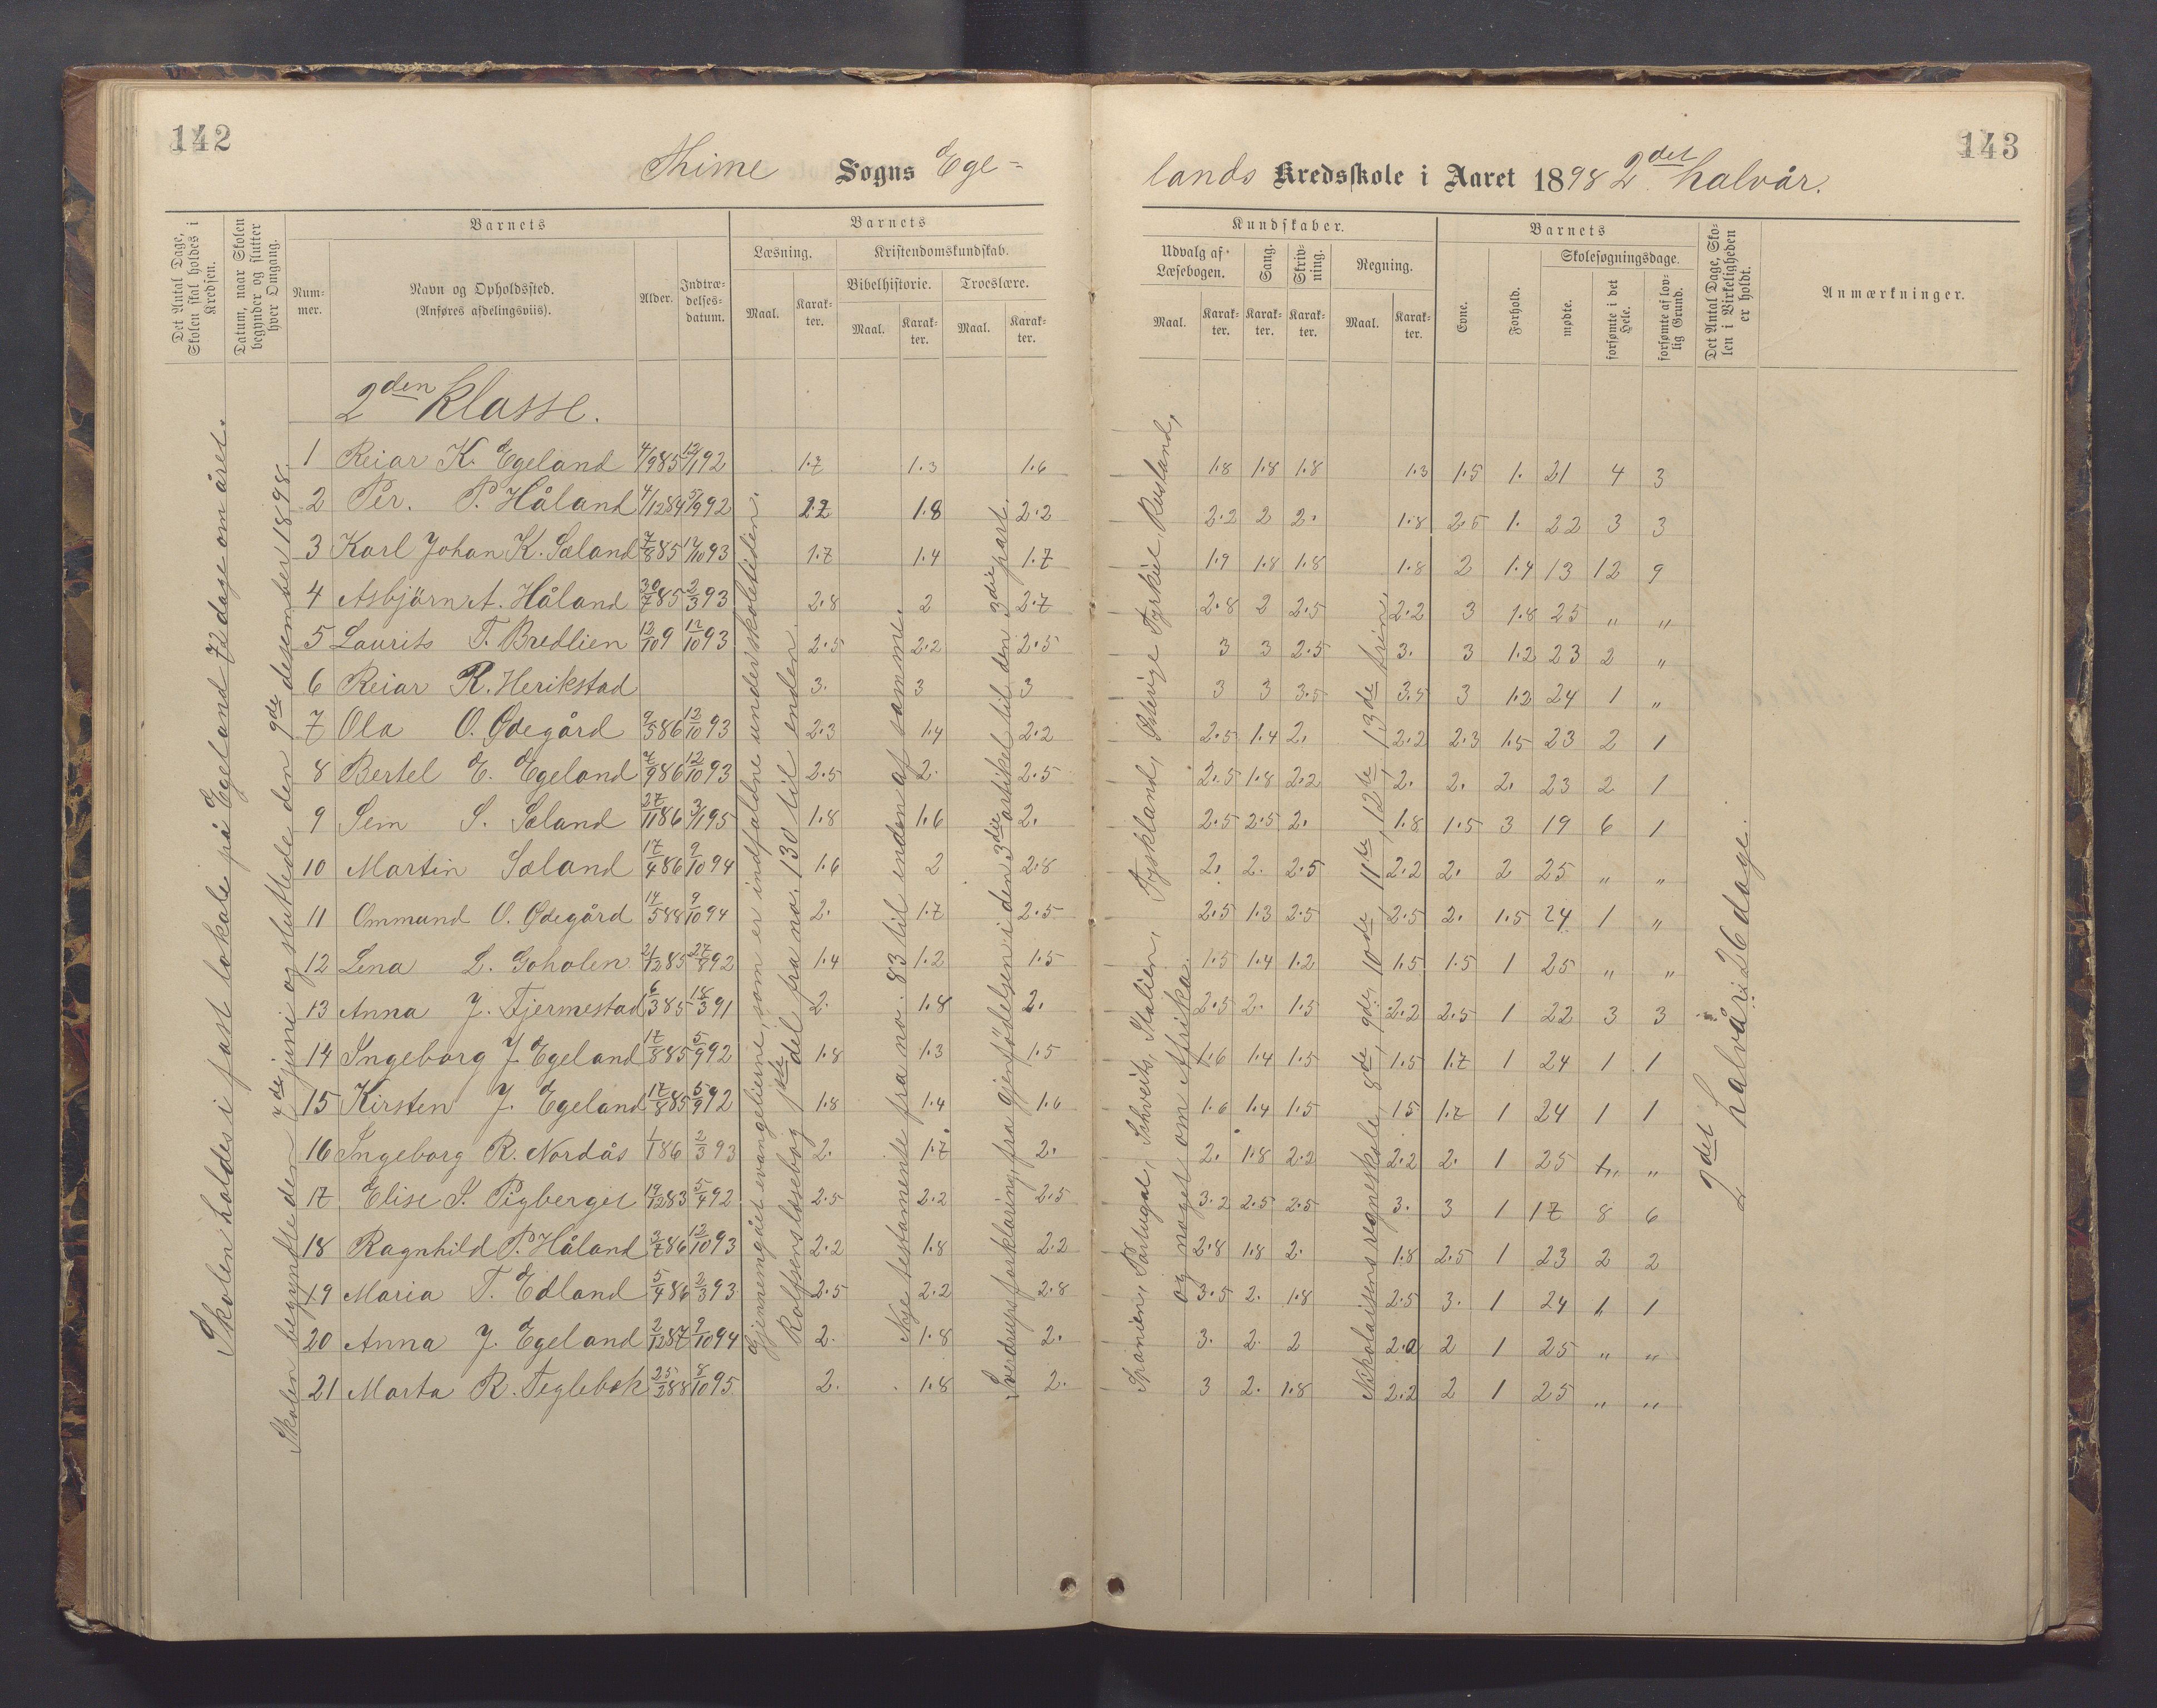 142
Thime Sogns Ege-
Det Antal Dage, Skolen skal holdes i Kredsen.
Datum, naar Skolen begynder og slutter hver Omgang.
Barnets
Num-mer.
Navn og Opholdssted.
(Anføres afdelingsviis).
Alder.
Indtræ-delses-datum.
Barnets
Læsning.
Kristendomskundskab.
Bibelhistorie. Troeslære.
Maal. Karak-ter. Maal. Karak-ter. Maal. Karak-ter.
Skolen holdes i fast lokale på Egeland 72 dage om året.
Skolen begyndte den 7de juni og sluttede den 9de desember 1898.
2den klasse.
1 Reiar K. Egeland 4/9 85 12/1 92 1.7 1.3 1.6
2 Per. P. Håland 4/12 84 5/9 92 2.2 1.8 2.2
3 Karl Johan K. Sæland 7/8 85 12/10 93 1.7 1.4 1.7
4 Asbjörn A. Håland 30/7 85 2/3 93 2.8 2 2.7
5 Laurits T. Bredlien 12/10 9 12/10 93 2.5 2.2 2.5
6 Reiar R. Herikstad 3. 3 3
7 Ola O. Ødegård 9/5 86 12/10 93 2.3 1.4 2.2
8 Bertel E. Egeland 7/9 86 12/10 93 2.5 2. 2.5
9 Sem S. Sæland 27/11 86 3/1 95 1.8 1.6 2.
10 Martin Sæland 17/4 86 9/10 94 1.6 2 2.8
11 Ommund O. Ødegård 14/5 88 9/10 94 2. 1.7 2.5
12 Lena L. Goholen 21/12 85 27/8 92 1.4 1.2 1.5
13 Anna J. Tjermestad 6/3 85 18/3 91 2. 1.8 2.
14 Ingeborg J. Egeland 17/8 85 5/9 92 1.8 1.3 1.5
15 Kirsten J. Egeland 17/8 85 5/9 92 1.8 1.4 1.6
16 Ingeborg R. Nordås 1/1 86 2/3 93 2. 1.7 2.
17. Elise S. Pigberget 19/12 83 5/4 92 2.5 2.2 2.5
18 Ragnhild P. Håland 3/7 86 12/10 93 2.2 1.8 2.2
19 Maria T. Edland 5/4 86 2/3 93 2.5 2.2 2.8
20 Anna J. Egeland 2/12 87 9/10 94 2. 1.8 2.
21 Marta R. Teglebæk 25/3 88 8/10 95 2. 1.8 2.
Gjennemgået evangelierne, som er indfaldne under skoletiden.
Rolfsens læsebog 1ste del fra no. 130 til enden.
Nye testamente fra no. 83 til enden af samme.
Sverdrups forklaring, fra gjenfödelsen i den 3die artikel til den 3die part.
143
lands Kredsskole i Aaret 1898 2det halvår.
Kundskaber.
Udvalg af Læsebogen.
Sang.
Skriv-ning.
Regning.
Maal. Karak-ter. Karak-ter. Karak-ter. Maal. Karak-ter.
Barnets
Evne.
Forhold.
Skolesøgningsdage.
mødte.
forsømte i det Hele.
forsømte af lov-lig Grund.
Det Antal Dage, Sko-len i Virkeligheden er holdt.
Anmærkninger.
1.8 1.8 1.8 1.3 1.5 1. 21 4 3
2.2 2 2. 1.8 2.5 1. 22 3 3
1.9 1.8 1.8 1.8 2 1.4 13 12 9
2.8 2 2.5 2.2 3 1.8 25 " "
3 3 2.5 3. 3 1.2 23 2 "
3 3 3.5 3.5 3 1.2 24 1 "
2.5 1.4 2. 2.2 2.3 1.5 23 2 1
2.5 1.8 2.2 2. 2. 2. 23 2 1
2.5 2.5 2. 1.8 1.5 3 19 6 1
2. 2. 2.5 2.2 2. 2 25 " "
2.5 1.3 2.5 2.5 2. 1.5 24 1 "
1.5 1.4 1.2 1.5 1.5 1 25 " "
2.5 2. 1.5 2.2 2.5 1 22 3 3
1.6 1.4 1.5 1.5 1.7 1 24 1 1
1.6 1.4 1.5 15 1.7 1 24 1 1
2. 1.8 2.2 2.2 2. 1 25 " "
3.2 2.5 2.5 3. 3 1 17 8 6
2.8 1.8 2. 1.8 2.5 1 23 2 2
3.5 2. 1.8 2.5 3. 1 24 1 1
3. 2. 2 2.0 2 1 25 " "
3 2. 1.8 2.2 2 1 25 " "
Spanien, Portugal, Schveits, Italien, Tyskland, Østerige Tyrkiet, Rusland,
og noget om Afrika.
Nikolaisens regneskole 8de, 9de, 10de, 11te, 12te, 13de trin.
2det halvår: 26 dage.